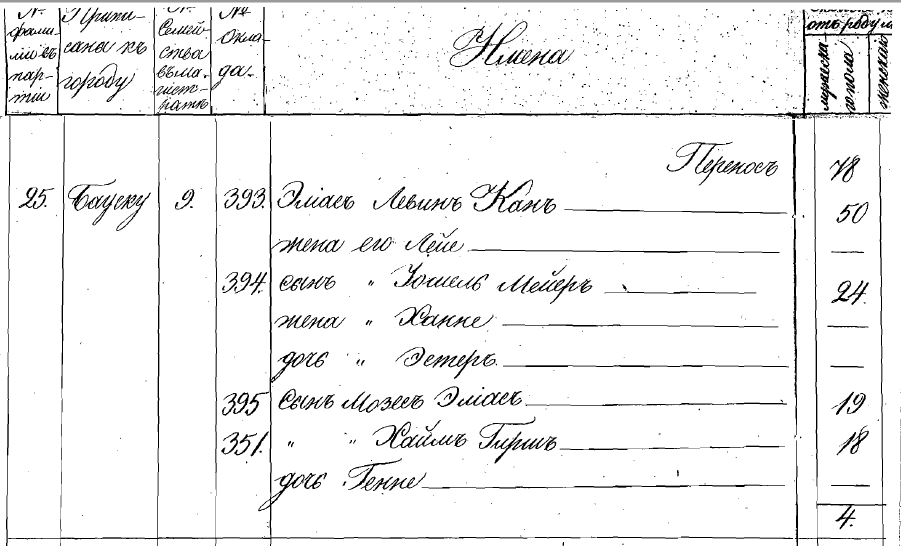 № фамиліи въ партіи
Приписана къ городу
№ Семейства въ магистратѣ
№ Оклада.
Имена
отъ роду
мужеска го пола
женскаго
Переносъ 78
25. Бауску 9. 393. Эліасъ Левинъ Канъ 50
жена его Лейе —
394. сынъ " Іоссель Мейеръ 24.
жена " Ханне —
дочь " Эстеръ. —
395 сынъ Мозесъ Эліасъ 19
351. " " Хаймъ Гиршъ 18
дочь Генне —
4.